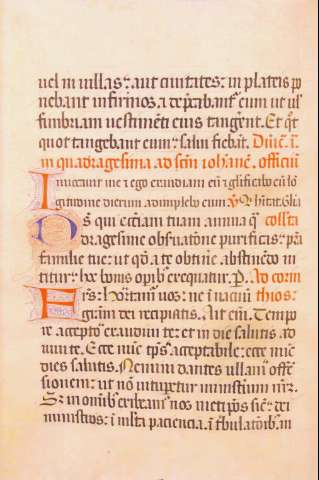 uel in uillas: aut ciuitates: in plateis po
nebant infirmos. a dep̄cabant̄ eum ut uł
fimbriam uestimēti eius tangerent. Et qͦt
quot tangebant eum: salui fiebāt. Dn̄ic. i.
in quadragesima. ad scm̄ ioh̄anē. officiū
Inuocauit me. a ego exaudiam eū. a gl̄ificabo eū. lō
gitudine dierum adimplebo eum. p̄s. Qi h̄itat.
Ds̄ qui eccl̄iam tuam annua q̄ collc̄a
dragesime obseruatōne purificas: p̄sta
familie tue: ut qͦ a te obtinē. abstinēdo ni
titur: hec bonis opib; exequatur. P. Ad corin
Frs̄: hortam̄ uos: ne ī uacuū thios:
gr̄am dei recipiatis. Ait eni. Tempo
re accepto exaudiui te: et in die salutis. ad
iuui te. Ecce nūc tp̄s acceptabile: ecce nūc
dies salutis. Nemini dantes ullam offē
sionem: ut nō uitupetur ministium nr̄m.
Sz in omīb; exhibeam nos metip̄os sic̄ dei
ministros: ī multa paciencia. ī t̄bulatōnib; in